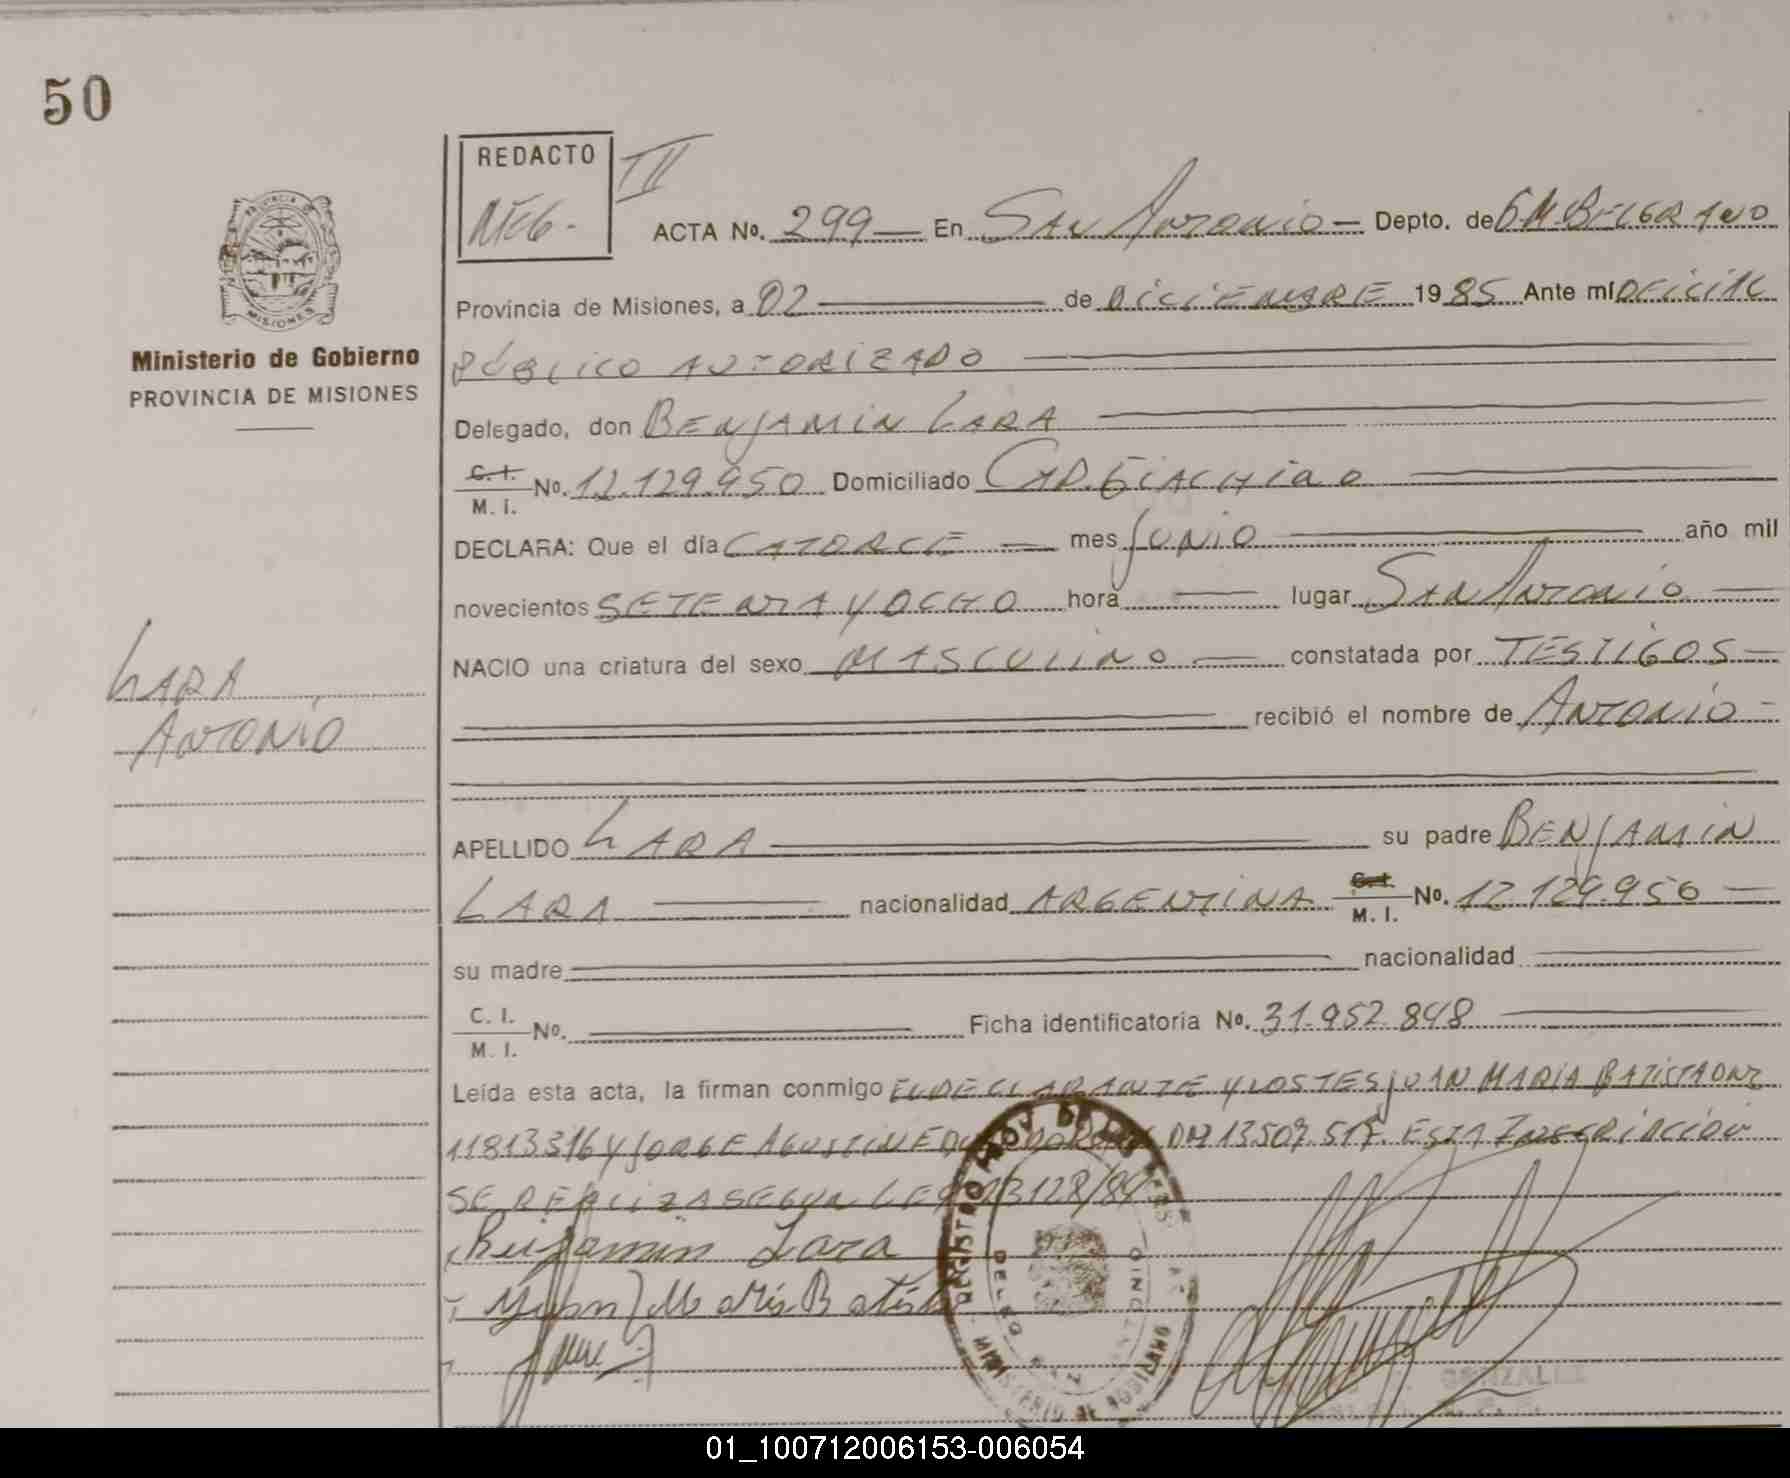 50
REDACTO
NEG-
II
ACTA No. 299 — En SAN ANTONIO — Depto. de G.M. BELGRANO
MISIONES
Ministerio de Gobierno
PROVINCIA DE MISIONES
Provincia de Misiones, a 02 de DICIEMBRE 1985 Ante mí OFICIAL
PÚBLICO AUTORIZADO
Delegado, don BENJAMIN LARA
C. I. M. I. No. 12.129.950 Domiciliado
DECLARA: Que el día CATORCE mes JUNIO año mil
novecientos SETENTA Y OCHO hora lugar SAN ANTONIO
NACIO una criatura del sexo MASCULINO constatada por TESTIGOS
recibió el nombre de ANTONIO
LARA
ANTONIO
APELLIDO LARA su padre BENJAMIN
LARA nacionalidad ARGENTINA C. I. M. I. No. 12.129.950
su madre nacionalidad
C. I. M. I. No. Ficha identificatoria No. 31.952.848
Leída esta acta, la firman conmigo EL DECLARANTE Y LOS TES JUAN MARIA BATISTA DNI
11813316 Y JORGE AGUSTIN DNI 13509 ESTA INSCRIPCION
SE REALIZA SEGUN LEY 23128/84
Benjamin Lara
Juan Maria Batista
REGISTRO
GONZALEZ
01_100712006153-006054